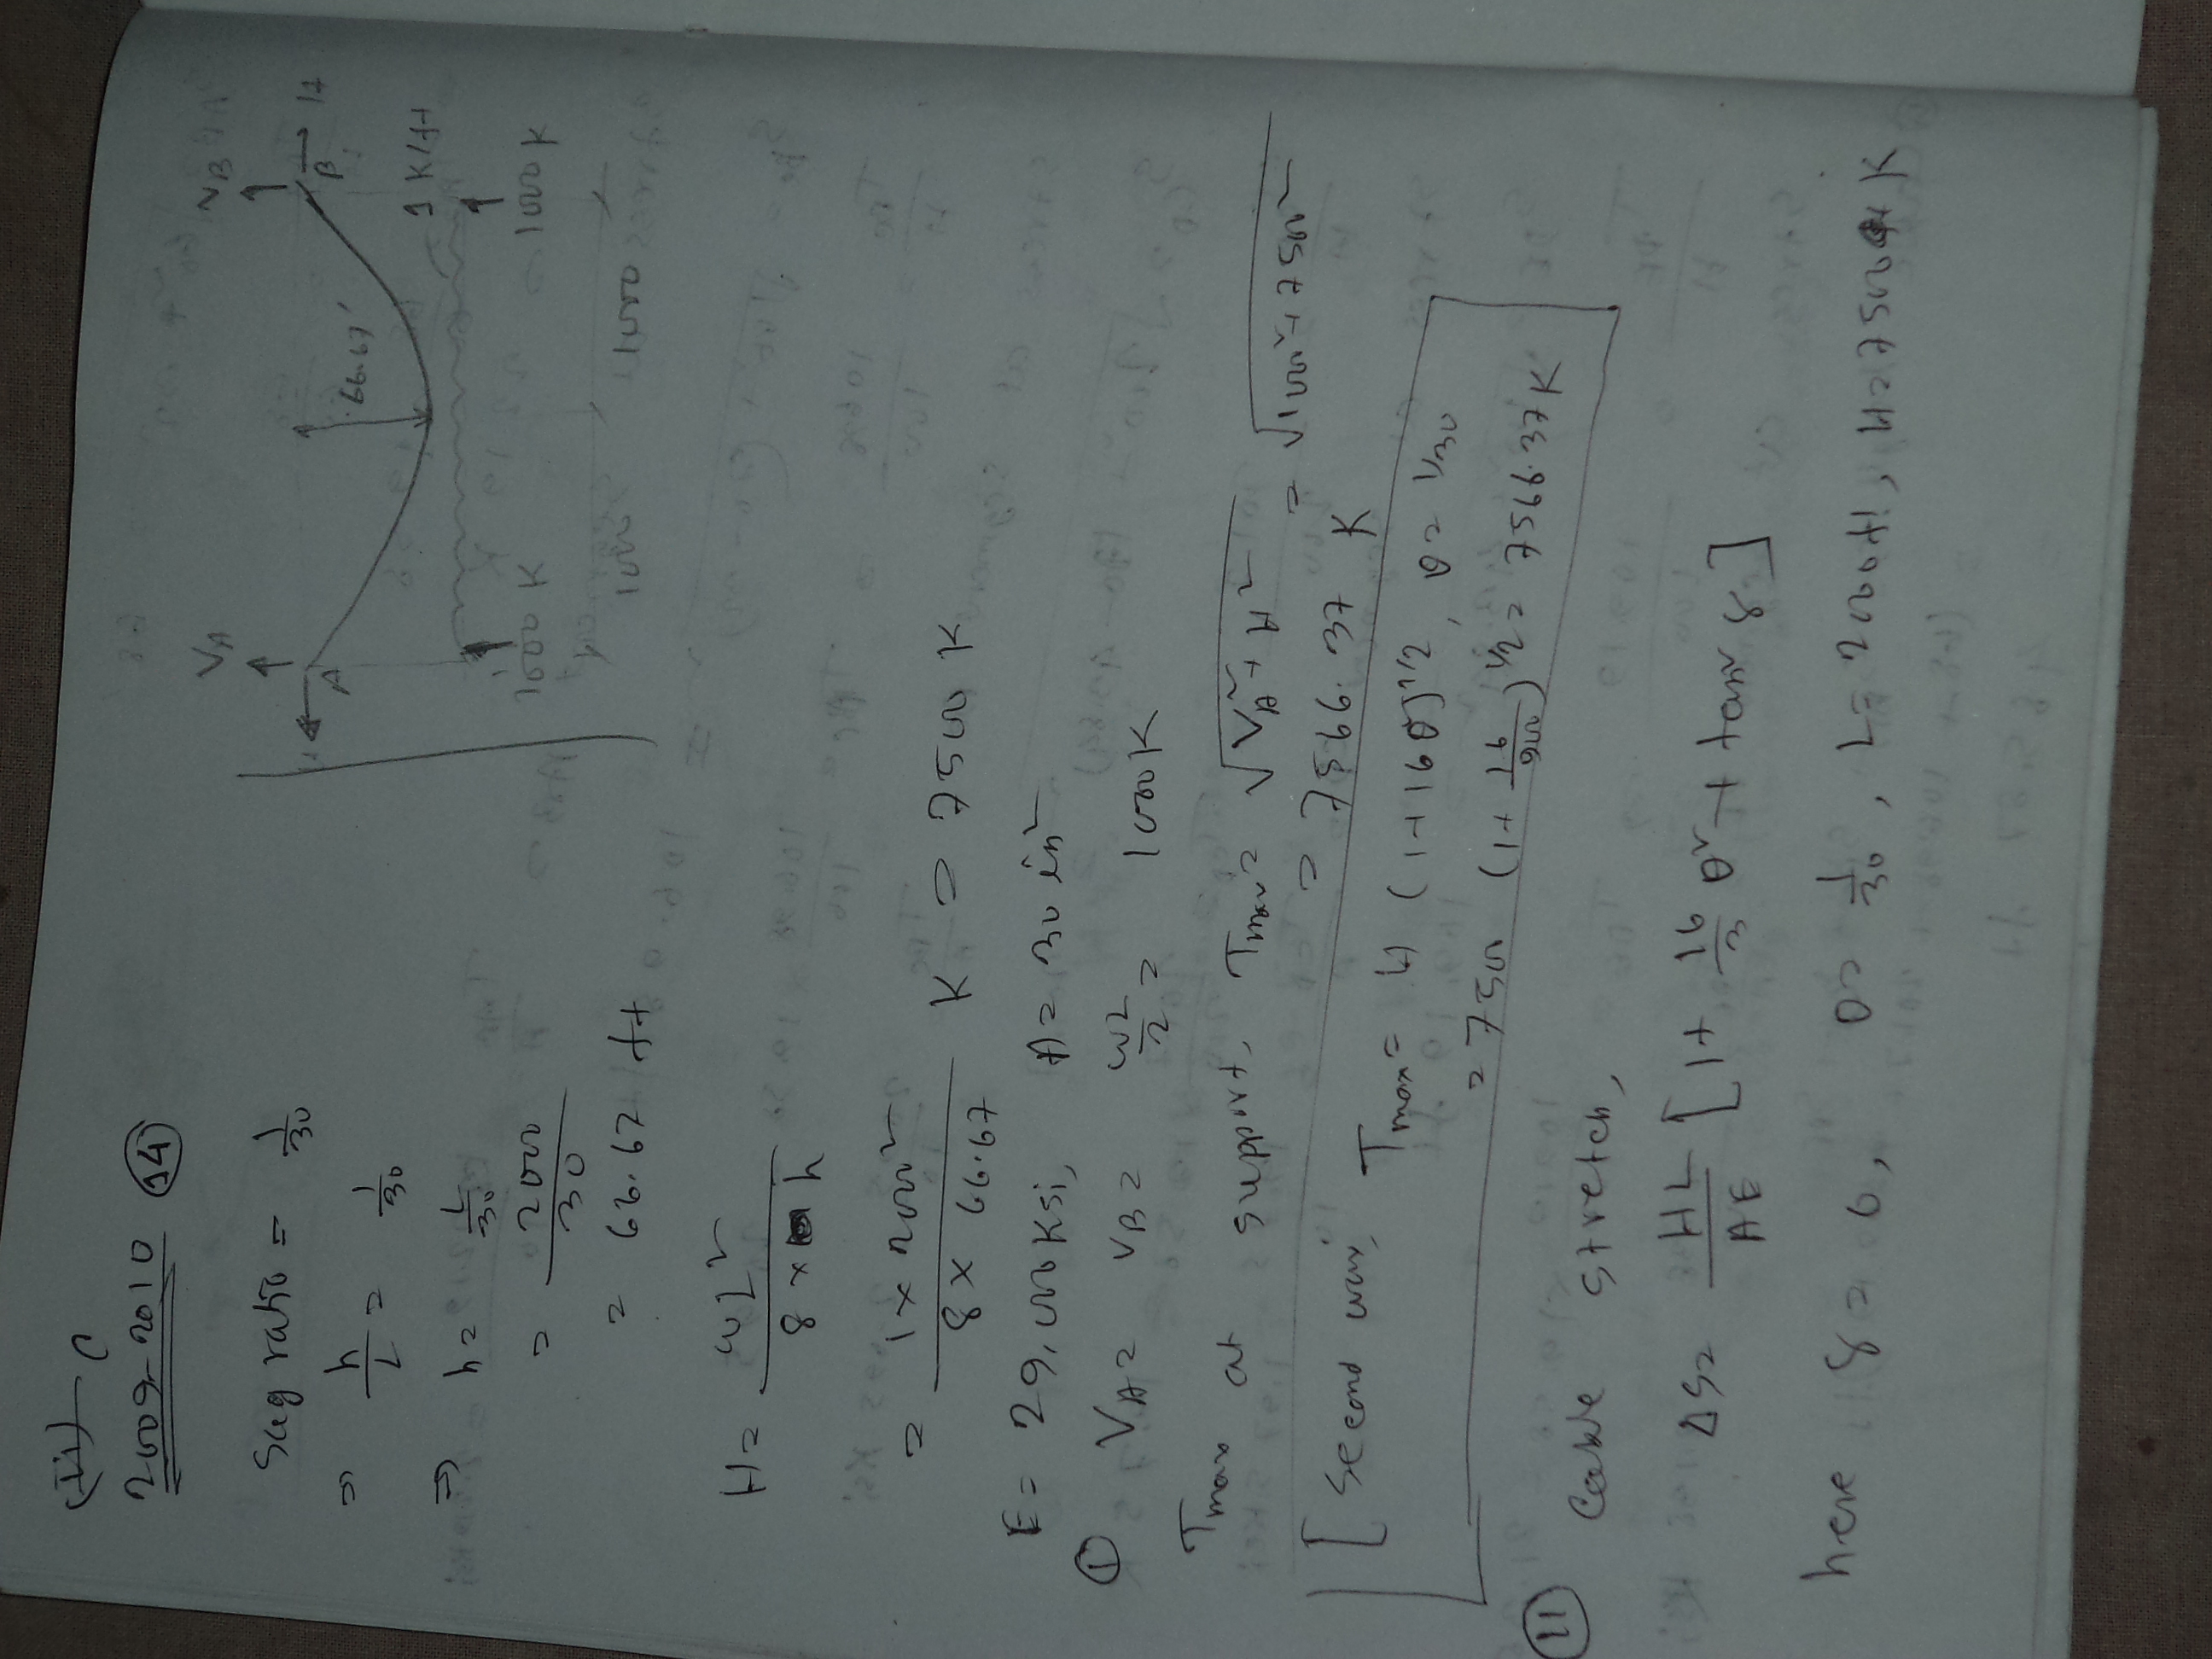 (ii) C
2009-2010 (14)
Sag ratio = 1/30
⇒ h/L = 1/30
⇒ h = L/30
= 2000/30
= 66.67 ft
VA
VB
H
A
B
H
66.67'
1 K/ft
1000 K
1000 K
1000
1000
H = wL²/8×h
= 1×2000²/8×66.67 K = 7500 K
E = 29,000 ksi, A = 30 in²
(1) VA = VB = wL/2 = 1000K
Tmax at support, Tmax = √VA²+H² = √1000²+7500²
= 7566.37 K
[Second way, Tmax = H (1+16θ²)^1/2, θ = 1/30
= 7500 (1+16/900)^1/2 = 7566.37 K
(11) Cable stretch,
ΔS = HL/AE [1+ 16/3 θ² + tan² γ]
here γ = 0, θ = 1/30, L = 2000ft, H = 7500 K